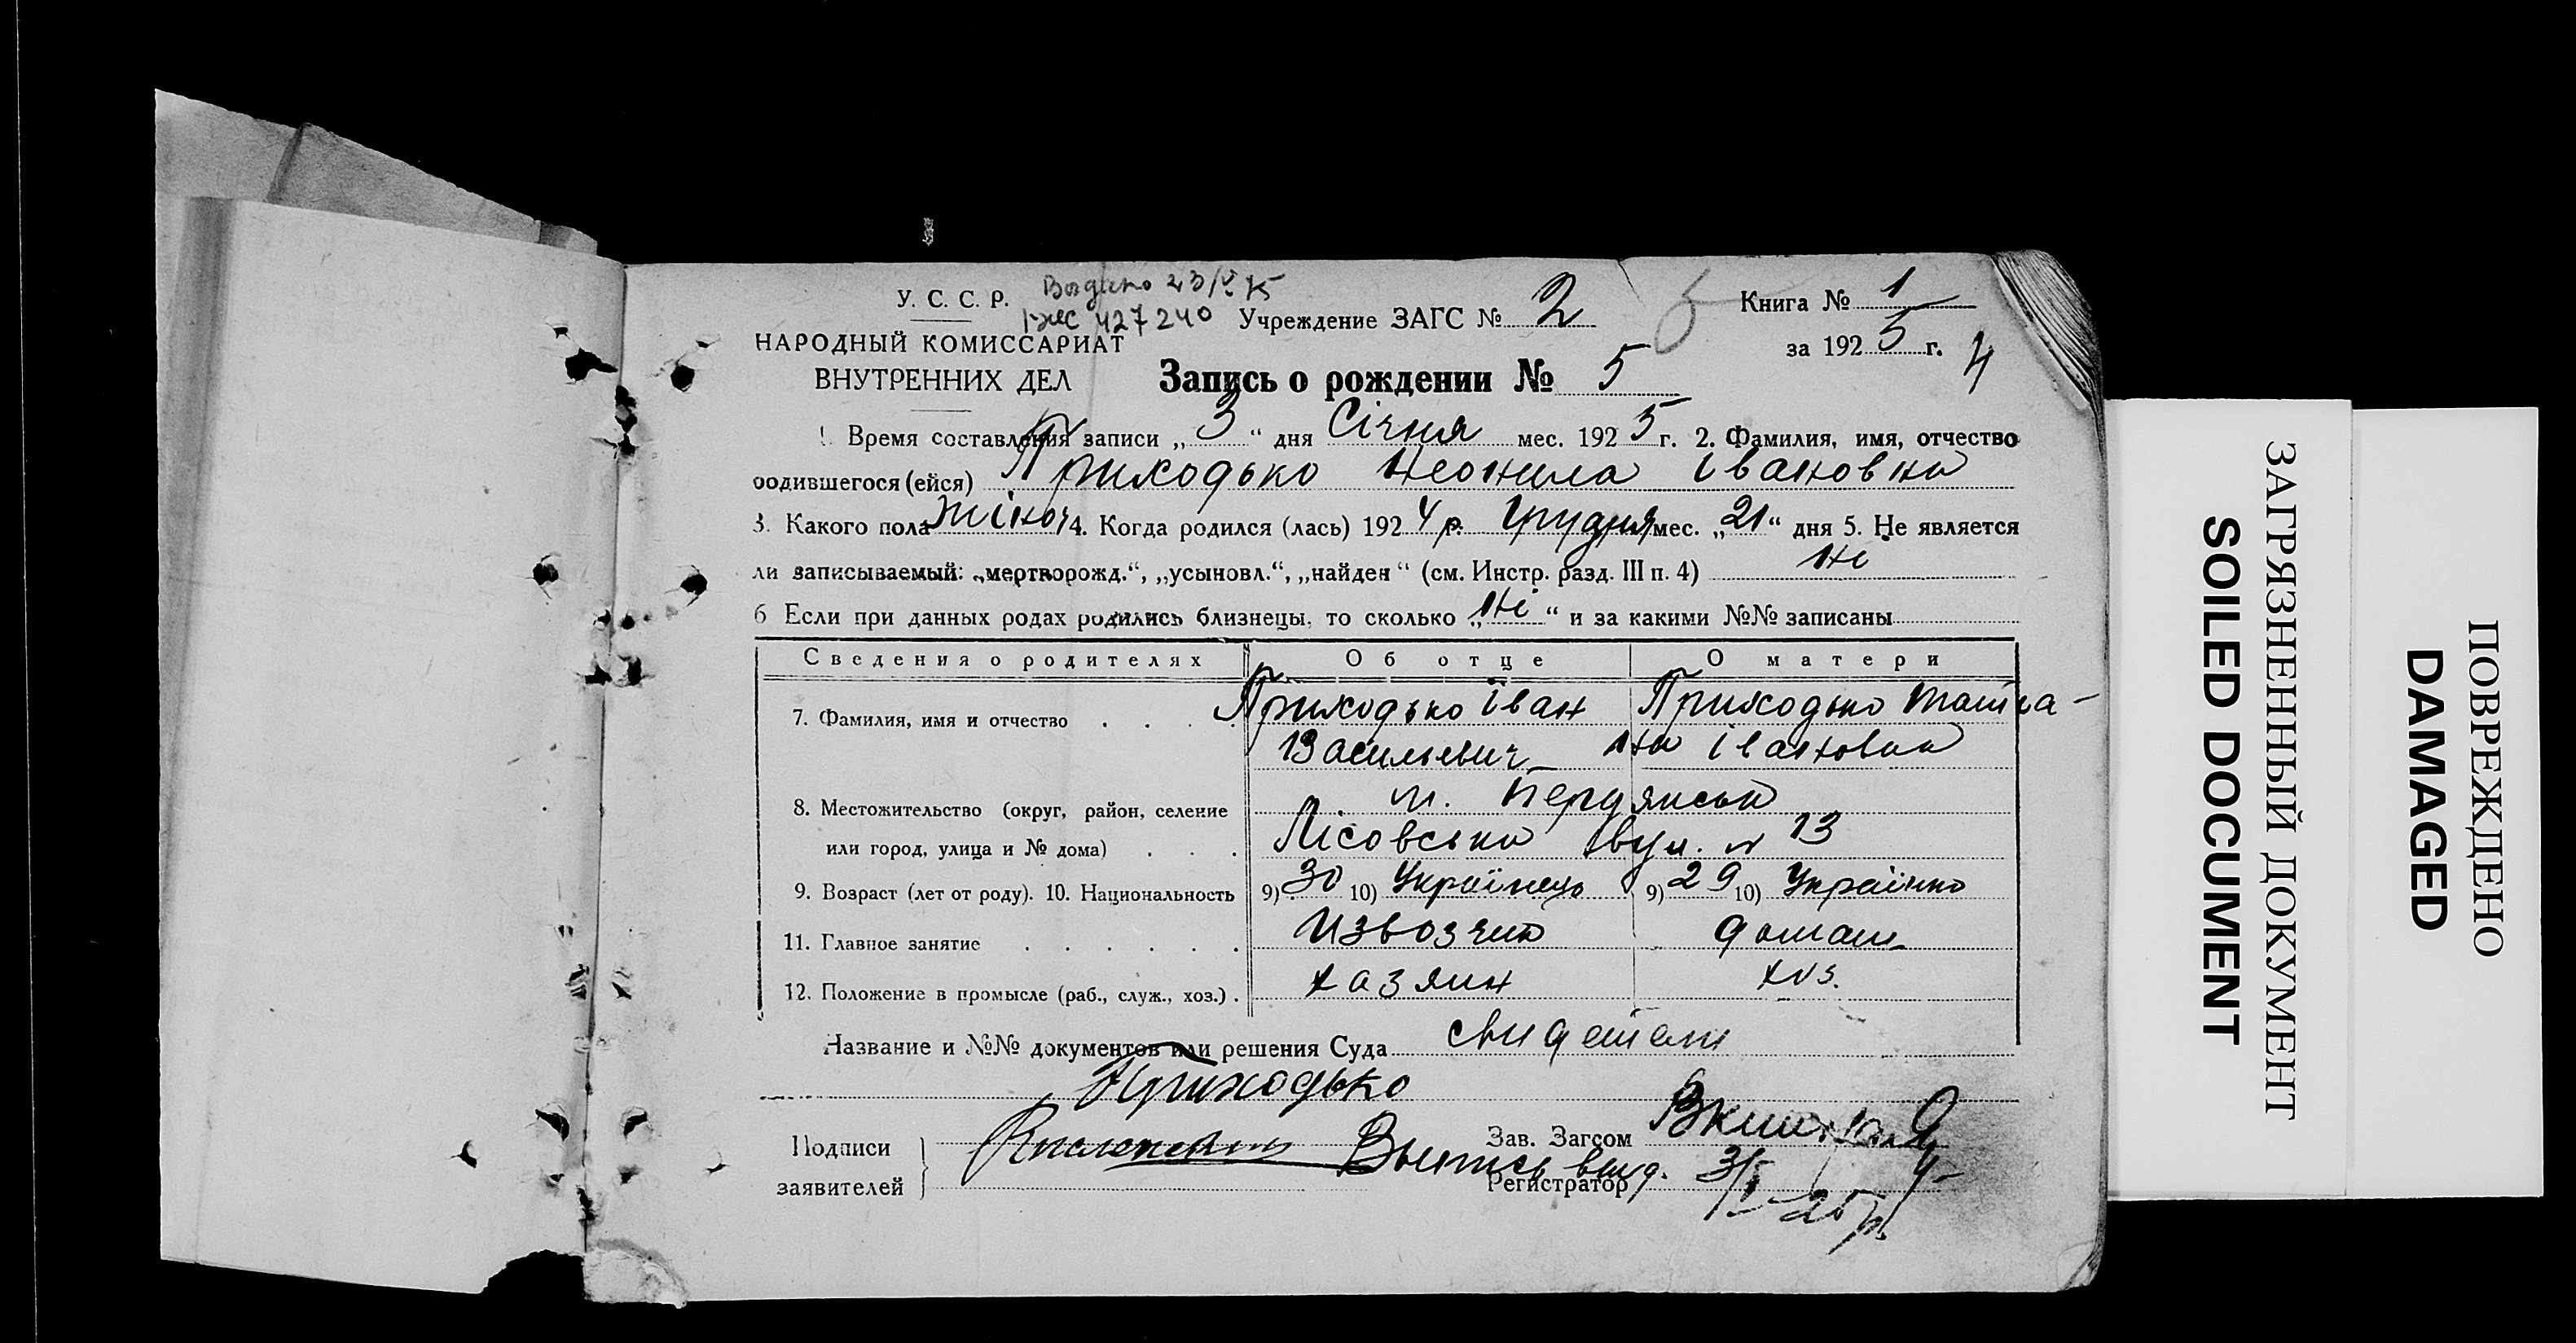 У. С. С. Р.
Выдано 23/V 75
427240
Учреждение ЗАГС № 2
Книга № 1
НАРОДНЫЙ КОМИССАРИАТ
за 1925 г. 4
ВНУТРЕННИХ ДЕЛ
Запись о рождении № 5
1. Время составления записи „3“ дня Січня мес. 1925 г. 2. Фамилия, имя, отчество
родившегося (ейся) Приходько Неонила Івановна
3. Какого пола жіноч 4. Когда родился (лась) 1924 р. Грудня мес. „21“ дня 5. Не является
ли записываемый: „мертворожд.“, „усыновл.“, „найден“ (см. Инстр. разд. III п. 4) ні
6 Если при данных родах родились близнецы, то сколько „ні“ и за какими №№ записаны
Сведения о родителях Об отце О матери
7. Фамилия, имя и отчество Приходько Іван Приходько Татіа-
Васильевич на Івановна
м. Бердянськ
8. Местожительство (округ, район, селение
или город, улица и № дома) Лісовська вул. № 13
9. Возраст (лет от роду). 10. Национальность 9) 30 10) Українець 9) 29 10) Українка
11. Главное занятие Извозчик домаш
12. Положение в промысле (раб., служ., хоз.) хазяин хоз.
Название и №№ документов или решения Суда свидетели
Приходько
Подписи
заявителей
Зав. Загсом
Выпись выд. 3/I-25 р.
Регистратор
ЗАГРЯЗНЕННЫЙ ДОКУМЕНТ
SOILED DOCUMENT
ПОВРЕЖДЕНО
DAMAGED